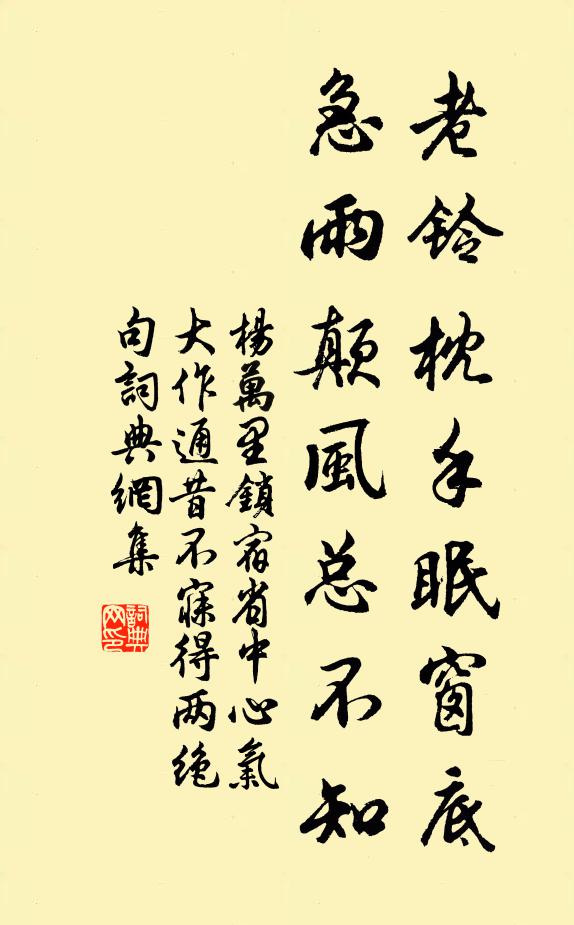 老鈴枕手眠窗底
急雨顛風总不知
楊萬里鎖宿省中心氣
大作通昔不寐得两绝
句詞典網集
詞典
网印